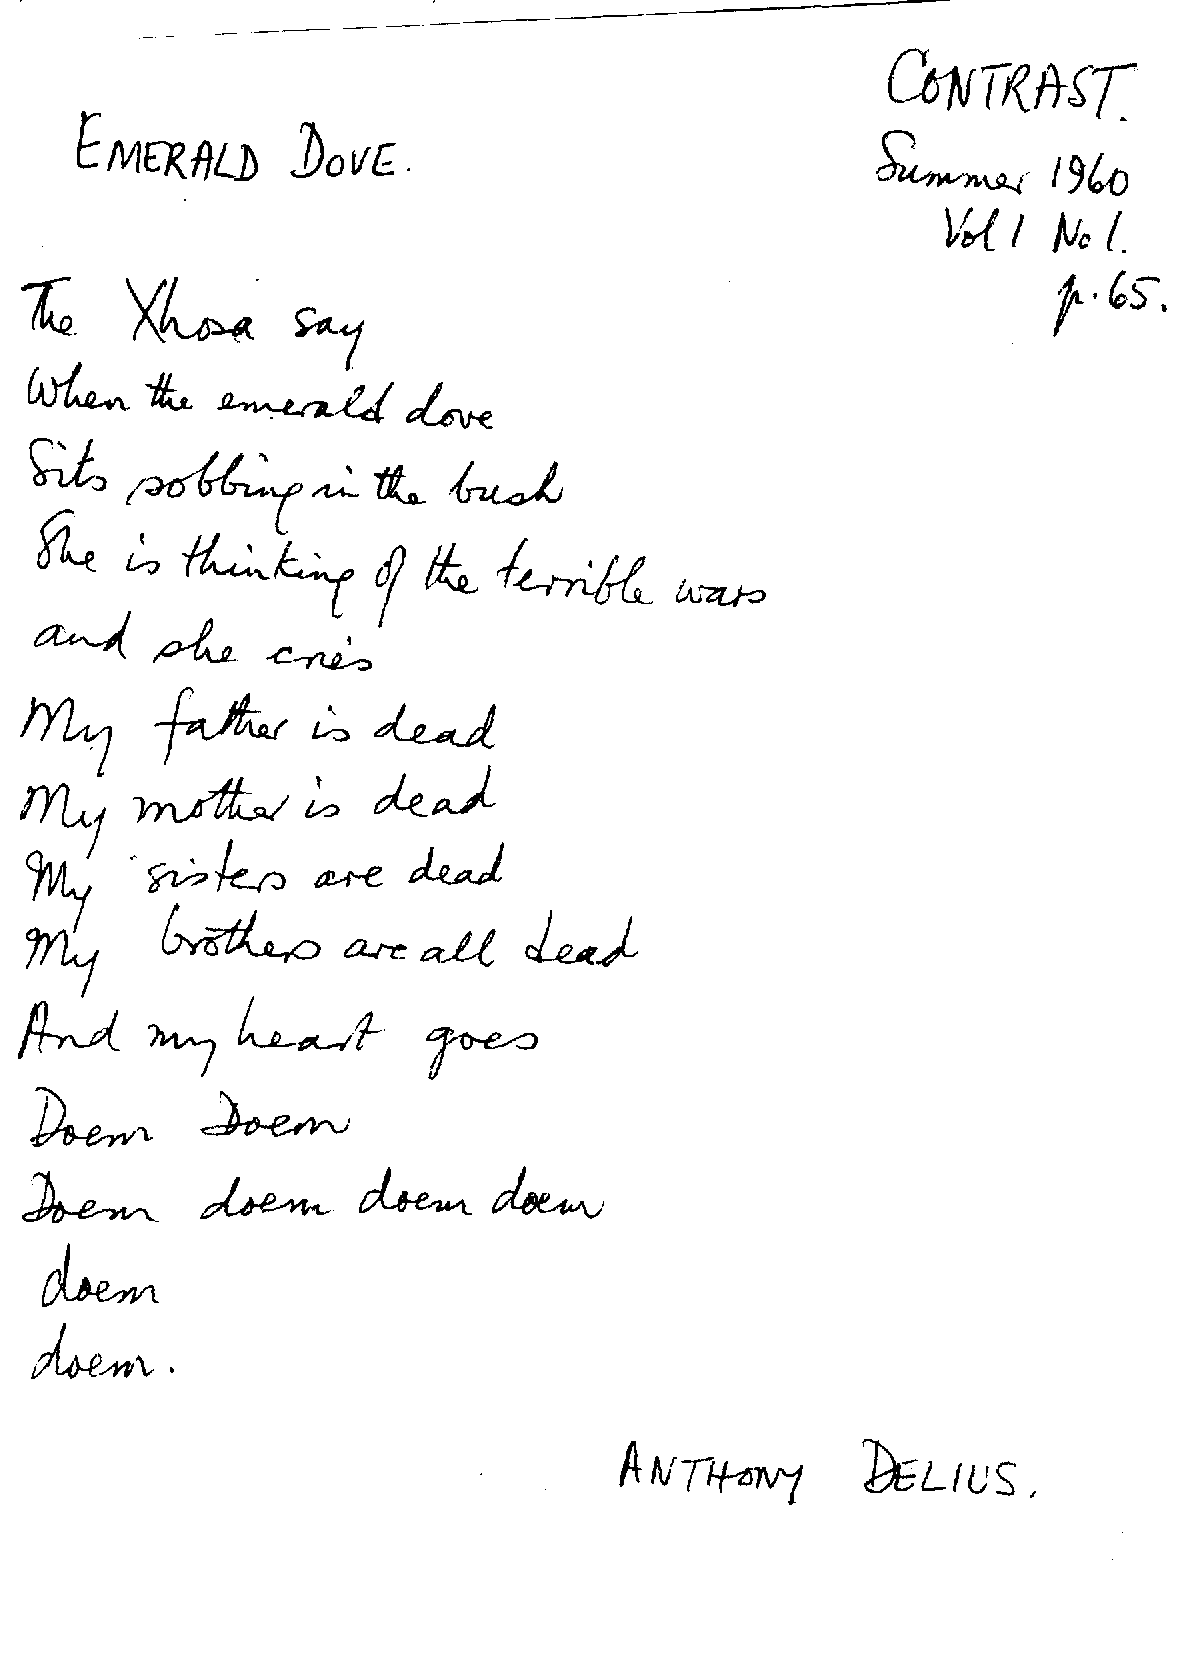 CONTRAST.
EMERALD DOVE.
Summer 1960
Vol 1 No 1.
p. 65.
The Xhosa say
When the emerald dove
Sits sobbing in the bush
She is thinking of the terrible wars
and she cries
My father is dead
My mother is dead
My sisters are dead
My brothers are all dead
And my heart goes
Doem Doem
Doem doem doem doem
doem
doem.
ANTHONY DELIUS.